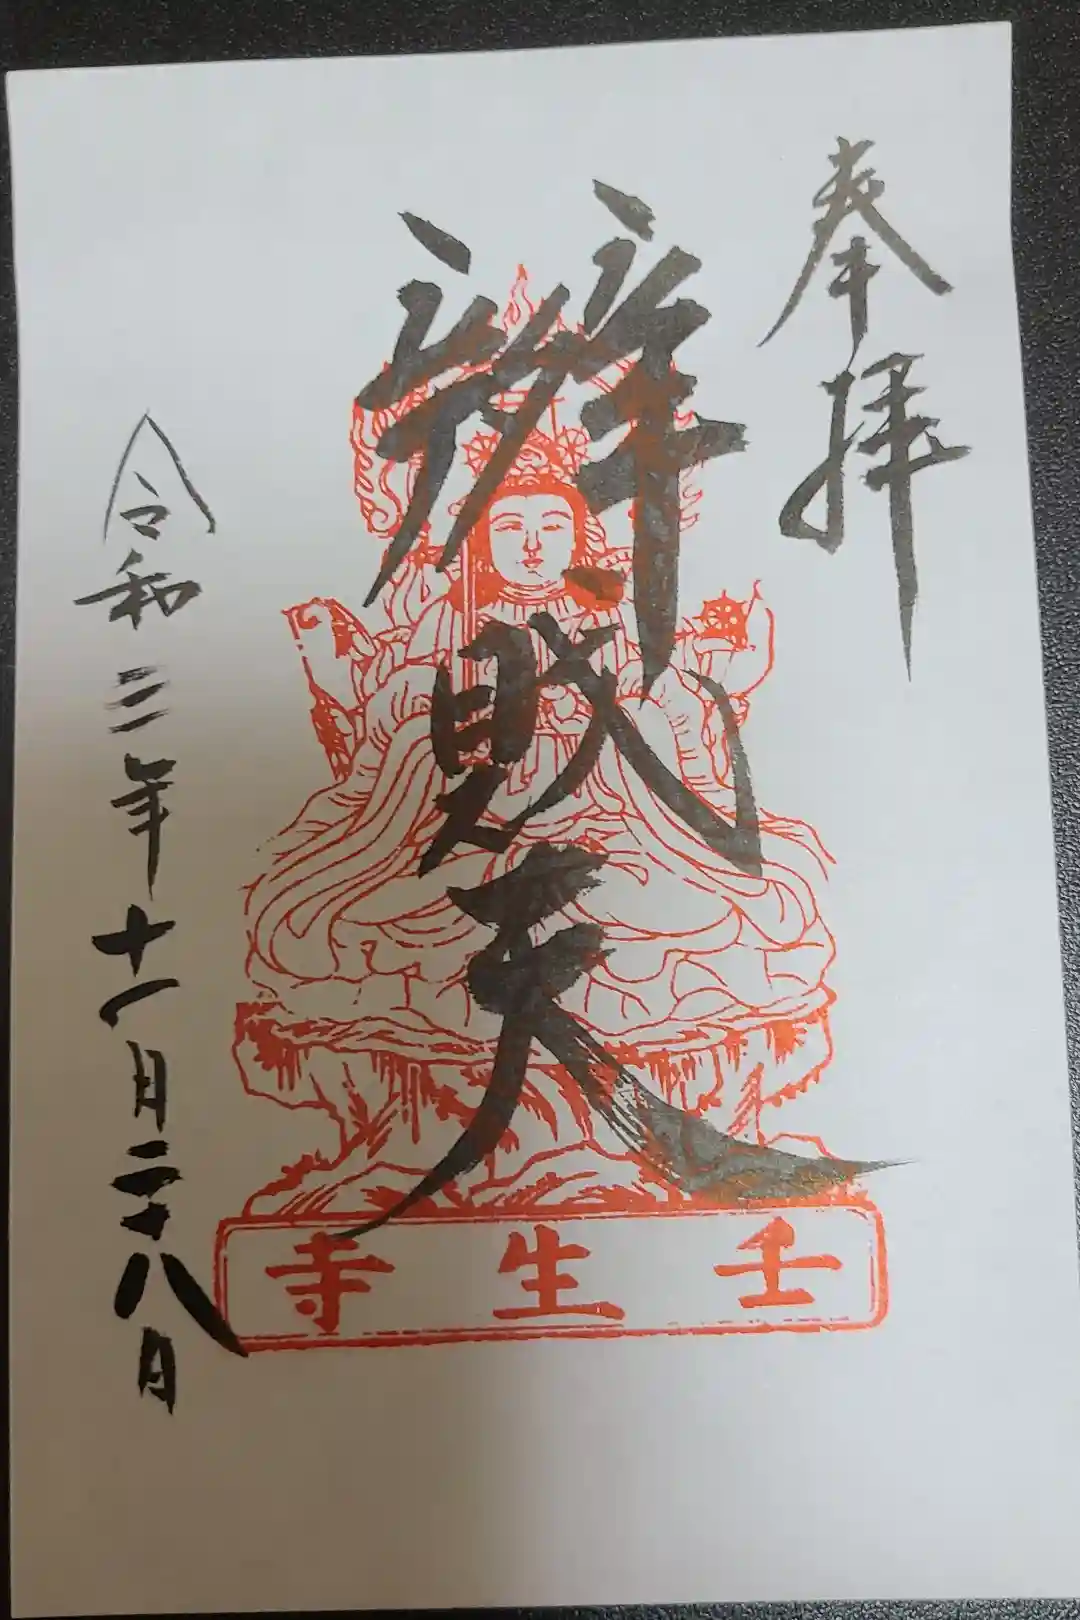 奉拝
辨財天
令和三年十一月二十八日
壬生寺